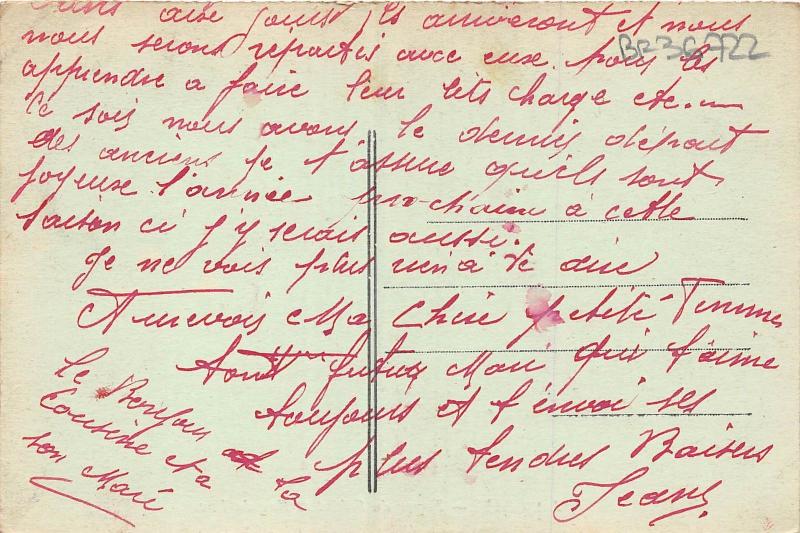 dans dix jours ils arriveront et nous
nous serons répartis avec eux pour les
BR36722
apprendre a faire leur lits charge etc. —
Ce soir nous avons le dernier départ
des anciens je t'assure qu'ils sont
joyeux l'année prochaine à cette
saison ci j'y serais aussi.
Je ne vois plus rien à te dire
Aurevoir Ma Chère petite Femme
Tont futur Mari qui t'aime
toujours et t'envoi ses
plus tendres Baisers
Jean
le Bonjour
a ta
Cousine et a
son Mari